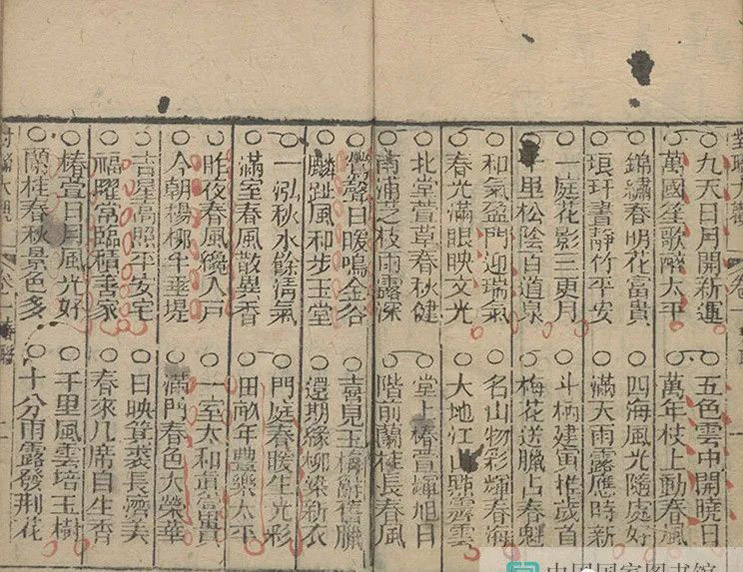 對聯大觀 卷一
九天日月開新運 五色雲中開曉日
萬國笙歌醉太平 萬年枝上動春風
錦繡春明花富貴 四海風光隨處好
琅玕書靜竹平安 滿天雨露應時新
一庭花影三更月 斗柄建寅推歲首
里松陰百道泉 梅花送臘占春魁
和氣盈門迎瑞氣 名山物彩輝春海
春光滿眼映文光 大地江山點霽雲
北堂萱草春秋健 堂上椿萱輝旭日
南浦芝枝雨露深 階前蘭桂長春風
鶯聲日暖鳴金谷 喜見玉梅辭舊臘
麟趾風和步玉堂 還期緑柳染新衣
一泓秋水餘清氣 門庭春暖生光彩
滿室春風散異香 田畝年豐樂太平
昨夜春風纔入戸 一室太和真富貴
今朝楊柳半垂堤 滿門春色大榮華
吉星高照平安宅 日映箕裘長濟美
福曜常臨積善家 春來几席自生香
椿萱日月風光好 千里風雲培玉樹
蘭桂春秋景色多 十分雨露發荆花
對聯大觀 卷一
中国国家图书馆